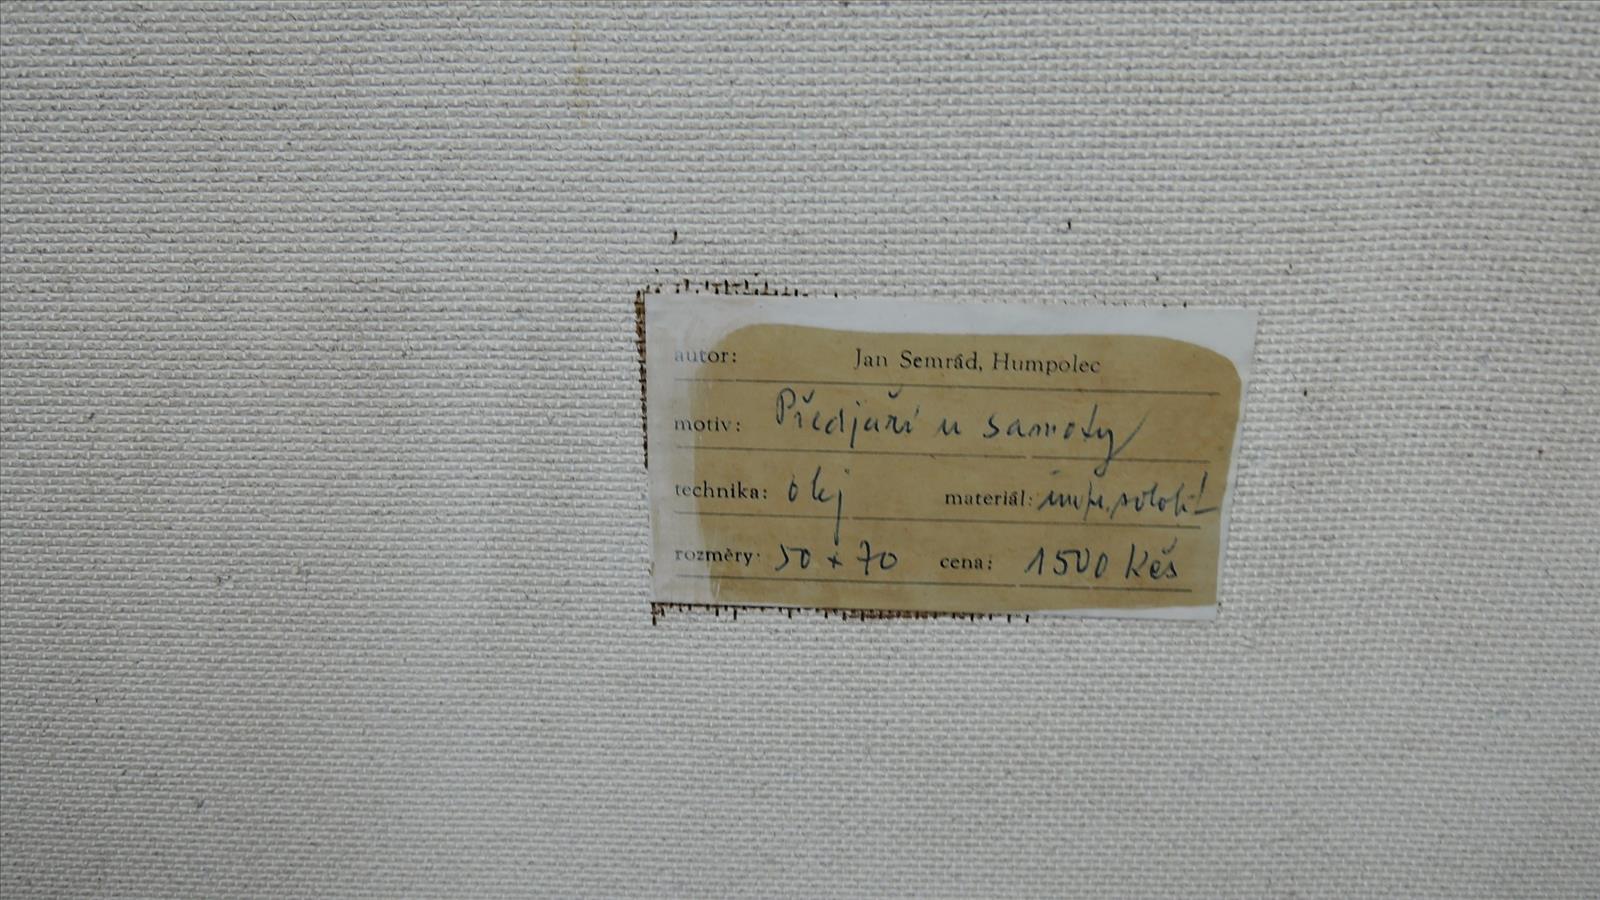 autor: Jan Semrád, Humpolec
motiv: Předjaří u samoty
technika: olej materiál:
rozměry: 50 x 70 cena: 1500 Kčs